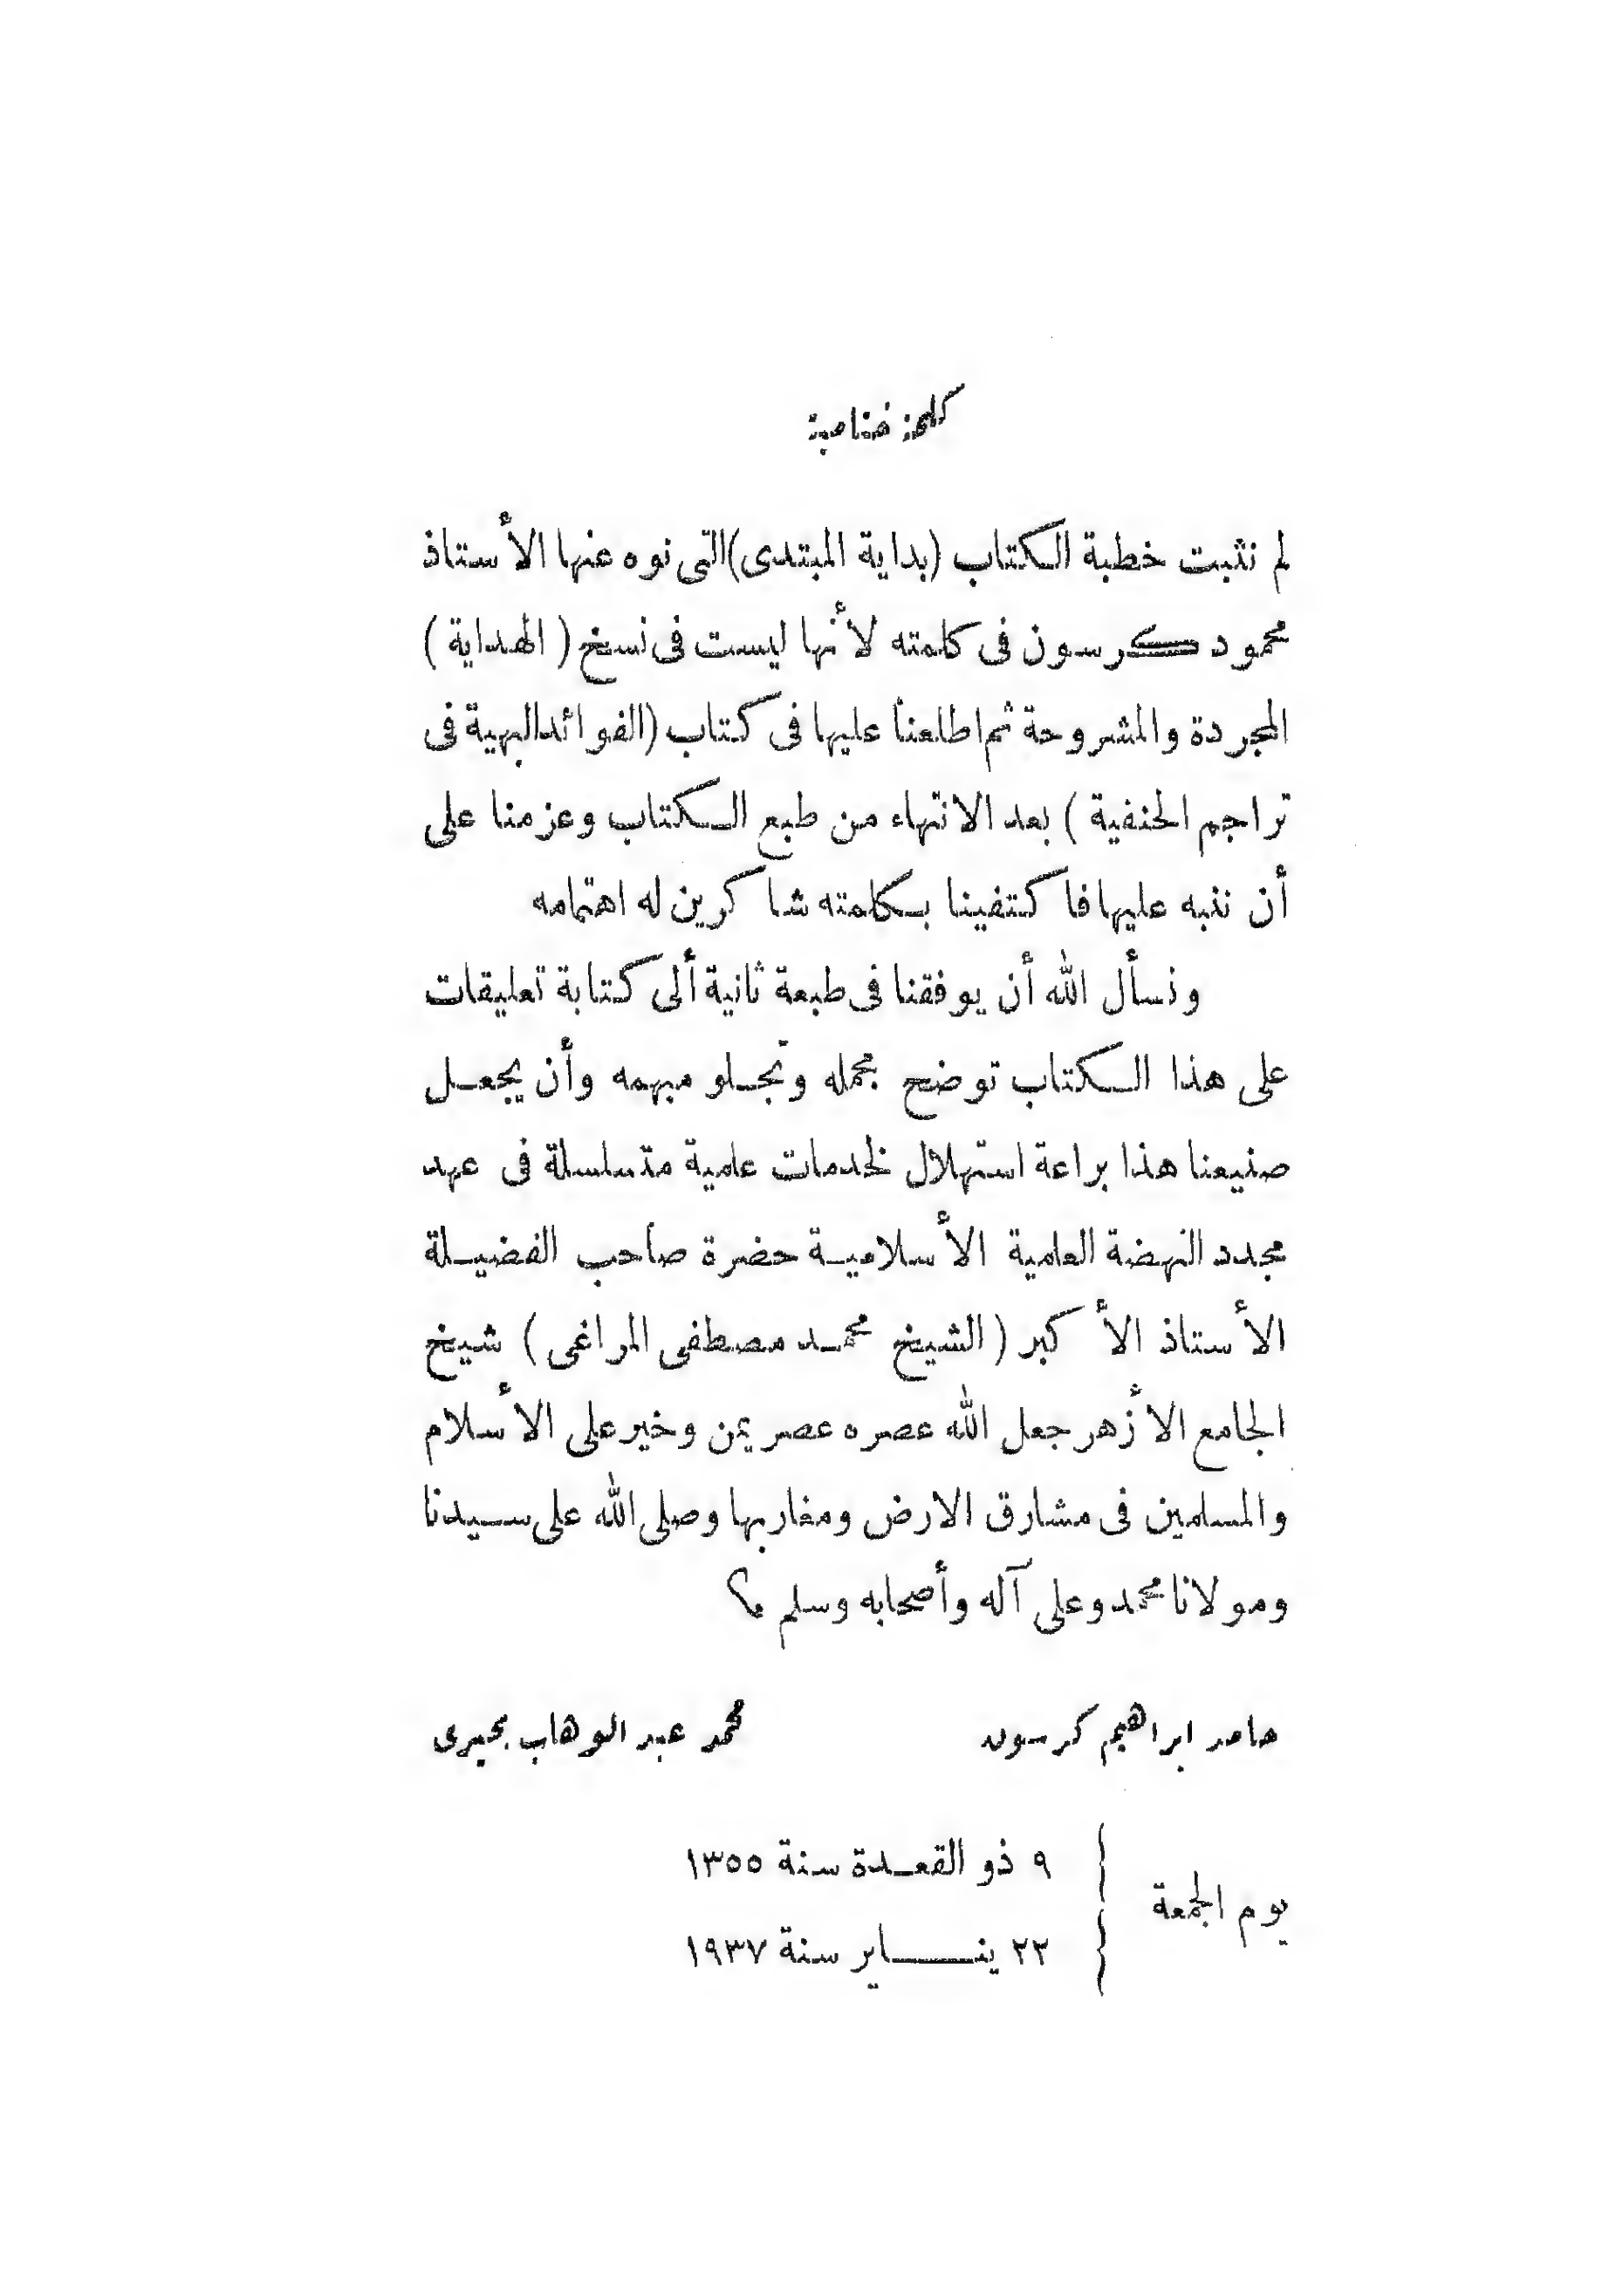 كلمة ختامية
لم نثبت خطبة الكتاب (بداية المبتدى) التى نوه عنها الأستاذ
محمود كرسون فى كلمته لأنها ليست فى نسخ (الهداية)
المجردة والمشروحة ثم اطلعنا عليها فى كتاب (الفوائد البهية فى
تراجم الحنفية) بعد الانتهاء من طبع الكتاب وعزمنا على
أن ننبه عليها فاكتفينا بكلمته شاكرين له اهتمامه
ونسأل الله أن يوفقنا فى طبعة ثانية ألى كتابة تعليقات
على هذا الكتاب توضح مجمله وتجلو مبهمه وأن يجعل
صنيعنا هذا براعة استهلال لخدمات علمية متسلسلة فى عهد
مجدد النهضة العلمية الأسلامية حضرة صاحب الفضيلة
الأستاذ الأكبر (الشيخ محمد مصطفى المراغى) شيخ
الجامع الأزهر جعل الله عصره عصر يمن وخير على الأسلام
والمسلمين فى مشارق الارض ومغاربها وصلى الله على سيدنا
ومولانا محمد وعلى آله وأصحابه وسلم ؟
حامد ابراهيم كرسون محمد عبد الوهاب بحيرى
يوم الجمعة
٩ ذو القعدة سنة ١٣٥٥
٢٢ يناير سنة ١٩٣٧